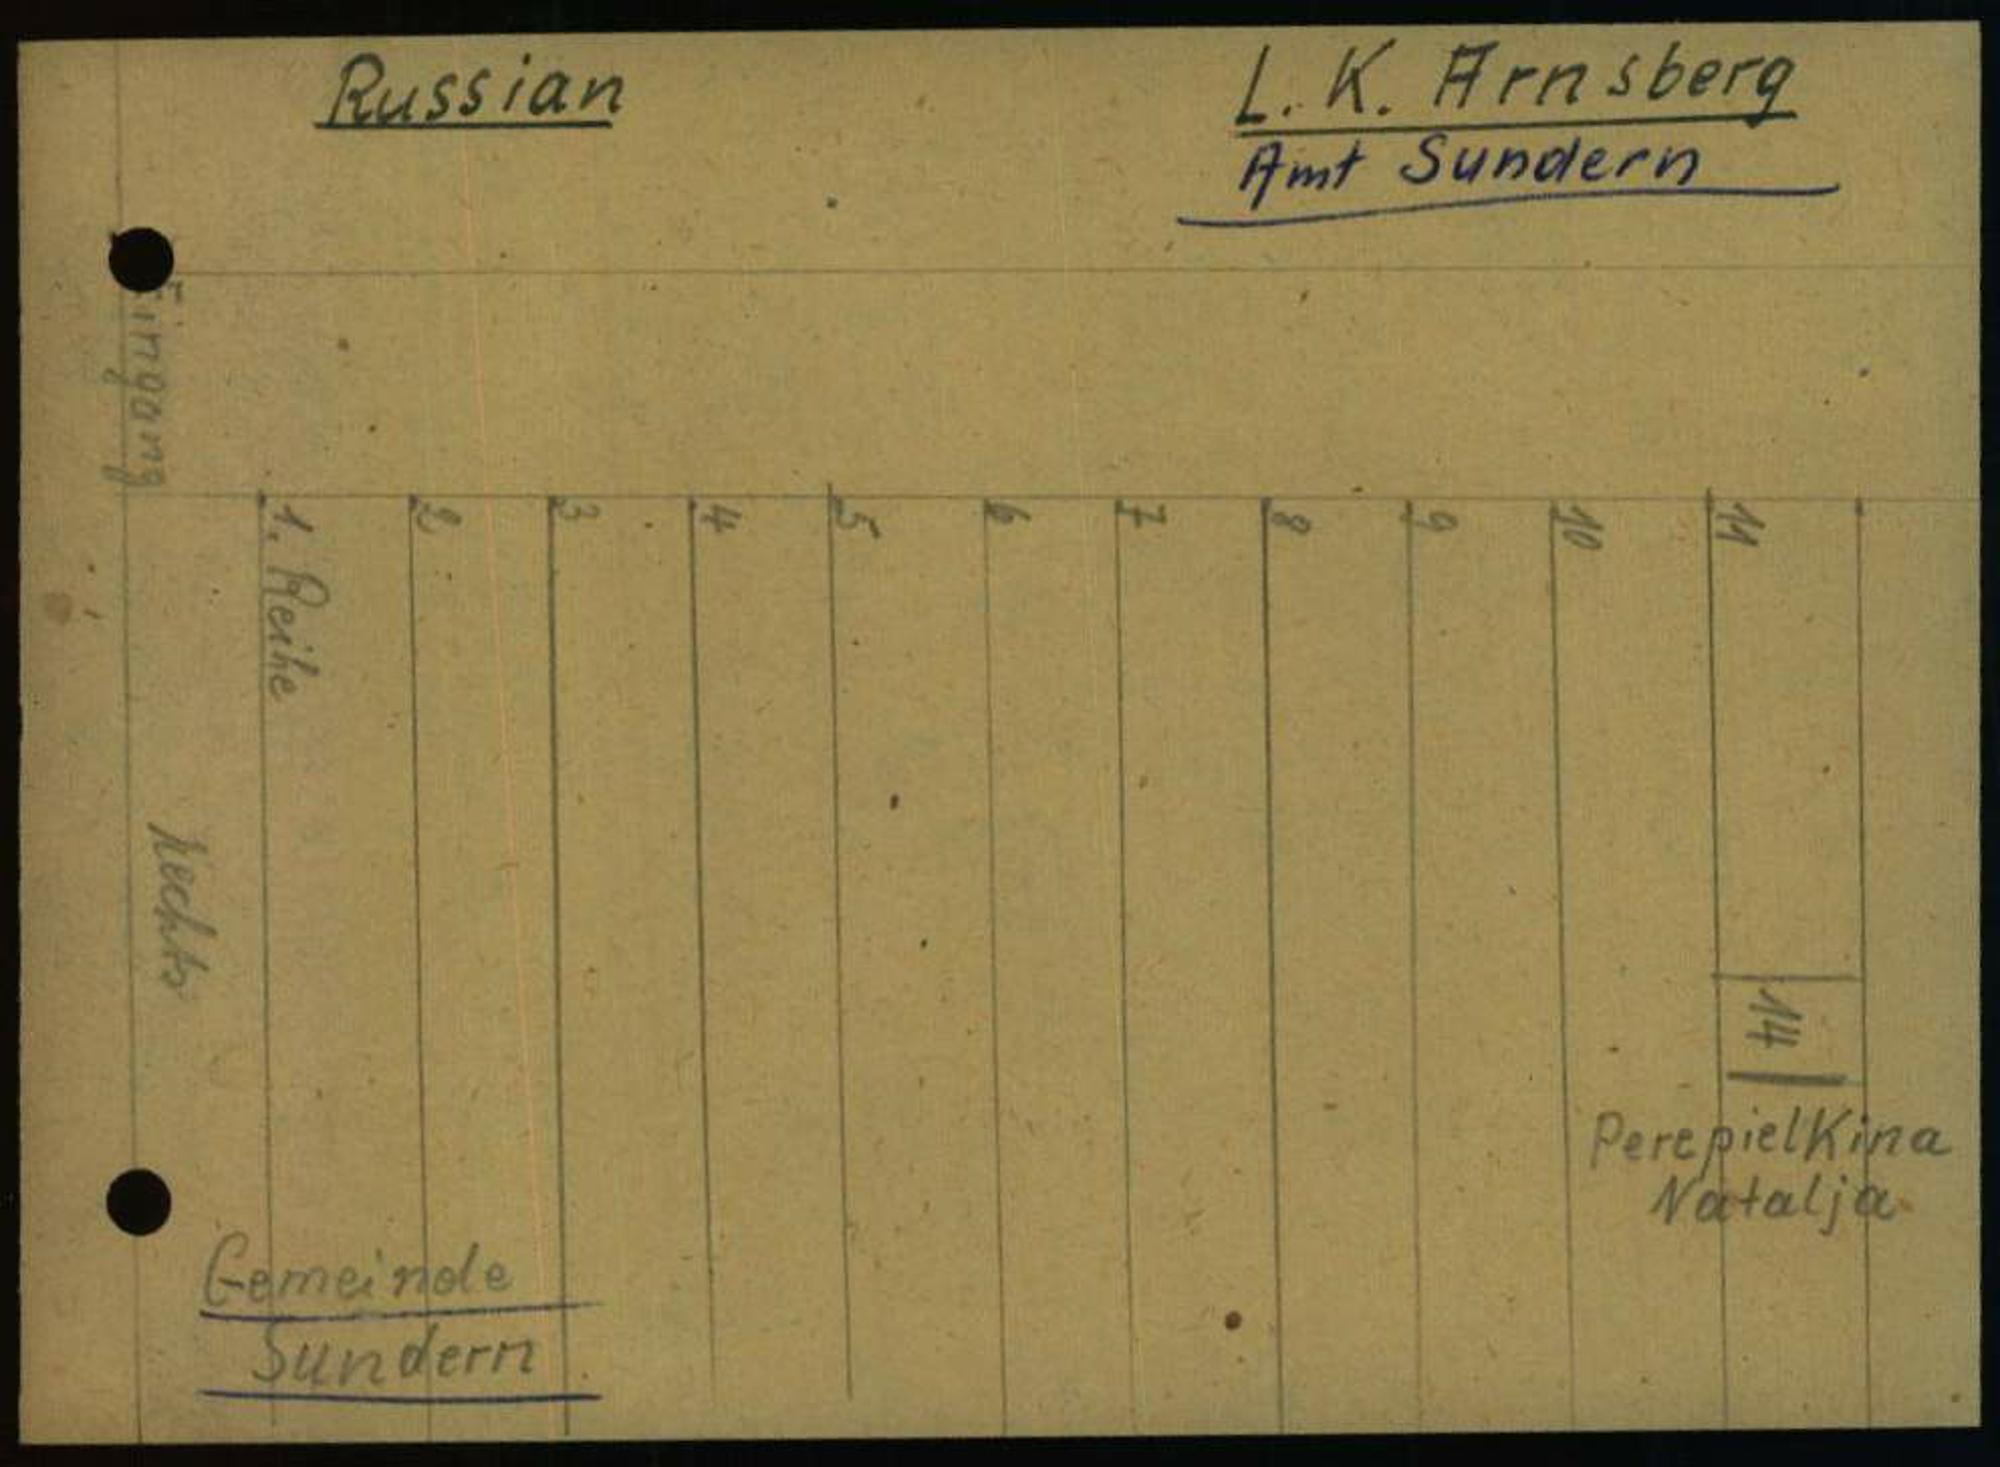 Russian
L. K. Arnsberg
Amt Sundern
Eingang
1. Reihe
2
3
4
5
6
7
8
9
10
11
Rechts
14
Perepielkina
Natalja
Gemeinde
Sundern